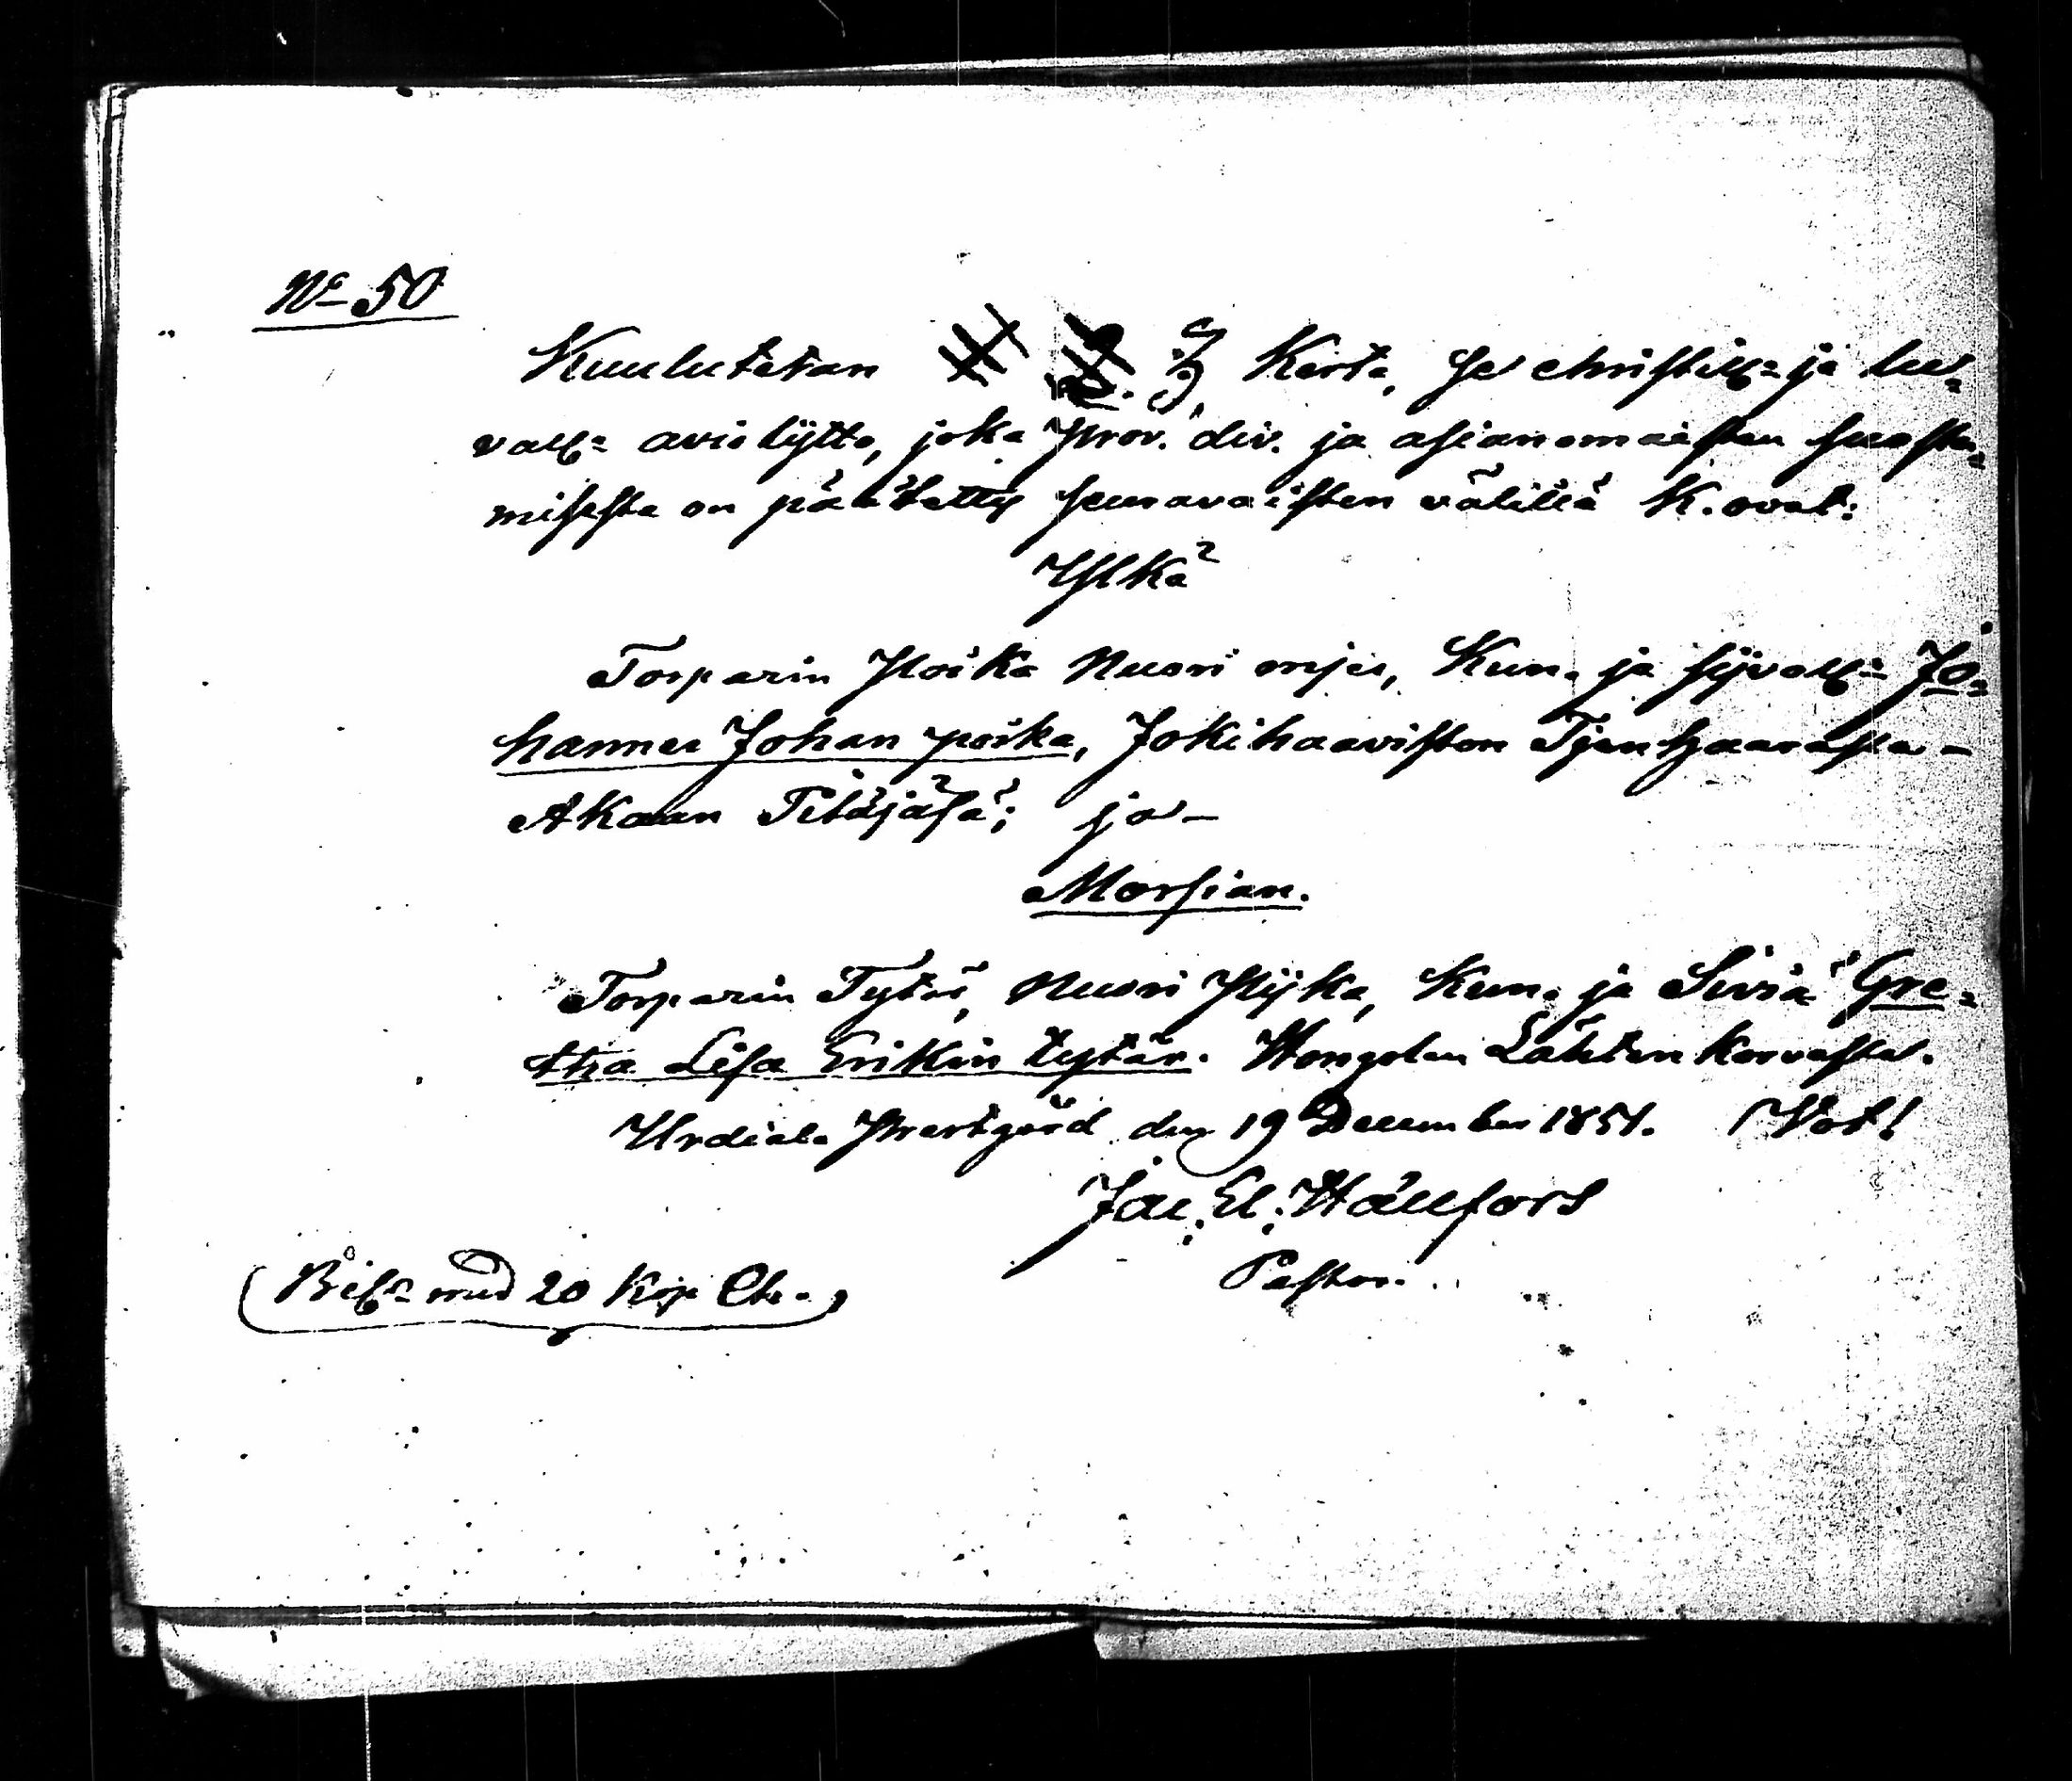 No 50
Kuulutetan 3 Kerta, se christill= ja lu=
vall= avioliytto, joka prov. div. ja asianomaisten suostu=
misesta on päätetty seuravaisten välillä K. ovat:
Ylkä
Torparin Poika Nuori mjes, Kun. ja sijvoll= Jo=
hannes Johan poika, Jokihaaviston
Akaan Pitäjäsä; ja –
Morsian.
Torparin Tytär, Nuori Pijka, Kun. ja Siviä Gre=
tha Lisa Erikin tytär. Hongolan Lähten korvasta.
Urdiala Prestgård den 19 December 1851.
Jac. El. Hällfors
Pastor.
med 20 Kop